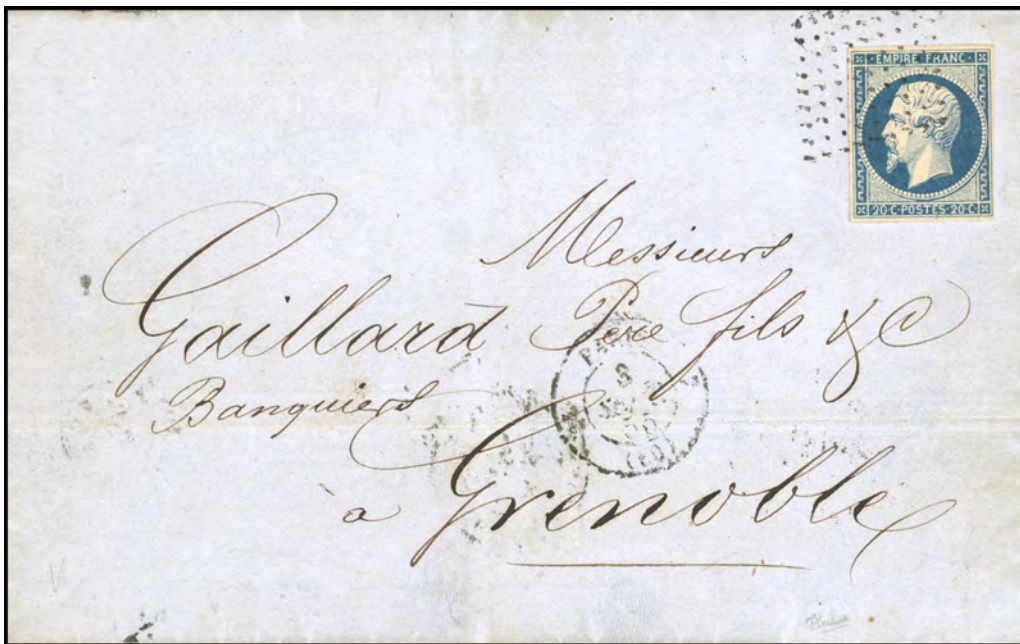 EMPIRE FRANC
20 C POSTES 20 C
Messieurs
Gaillard Père fils & C
Banquiers
à Grenoble
8
(60)